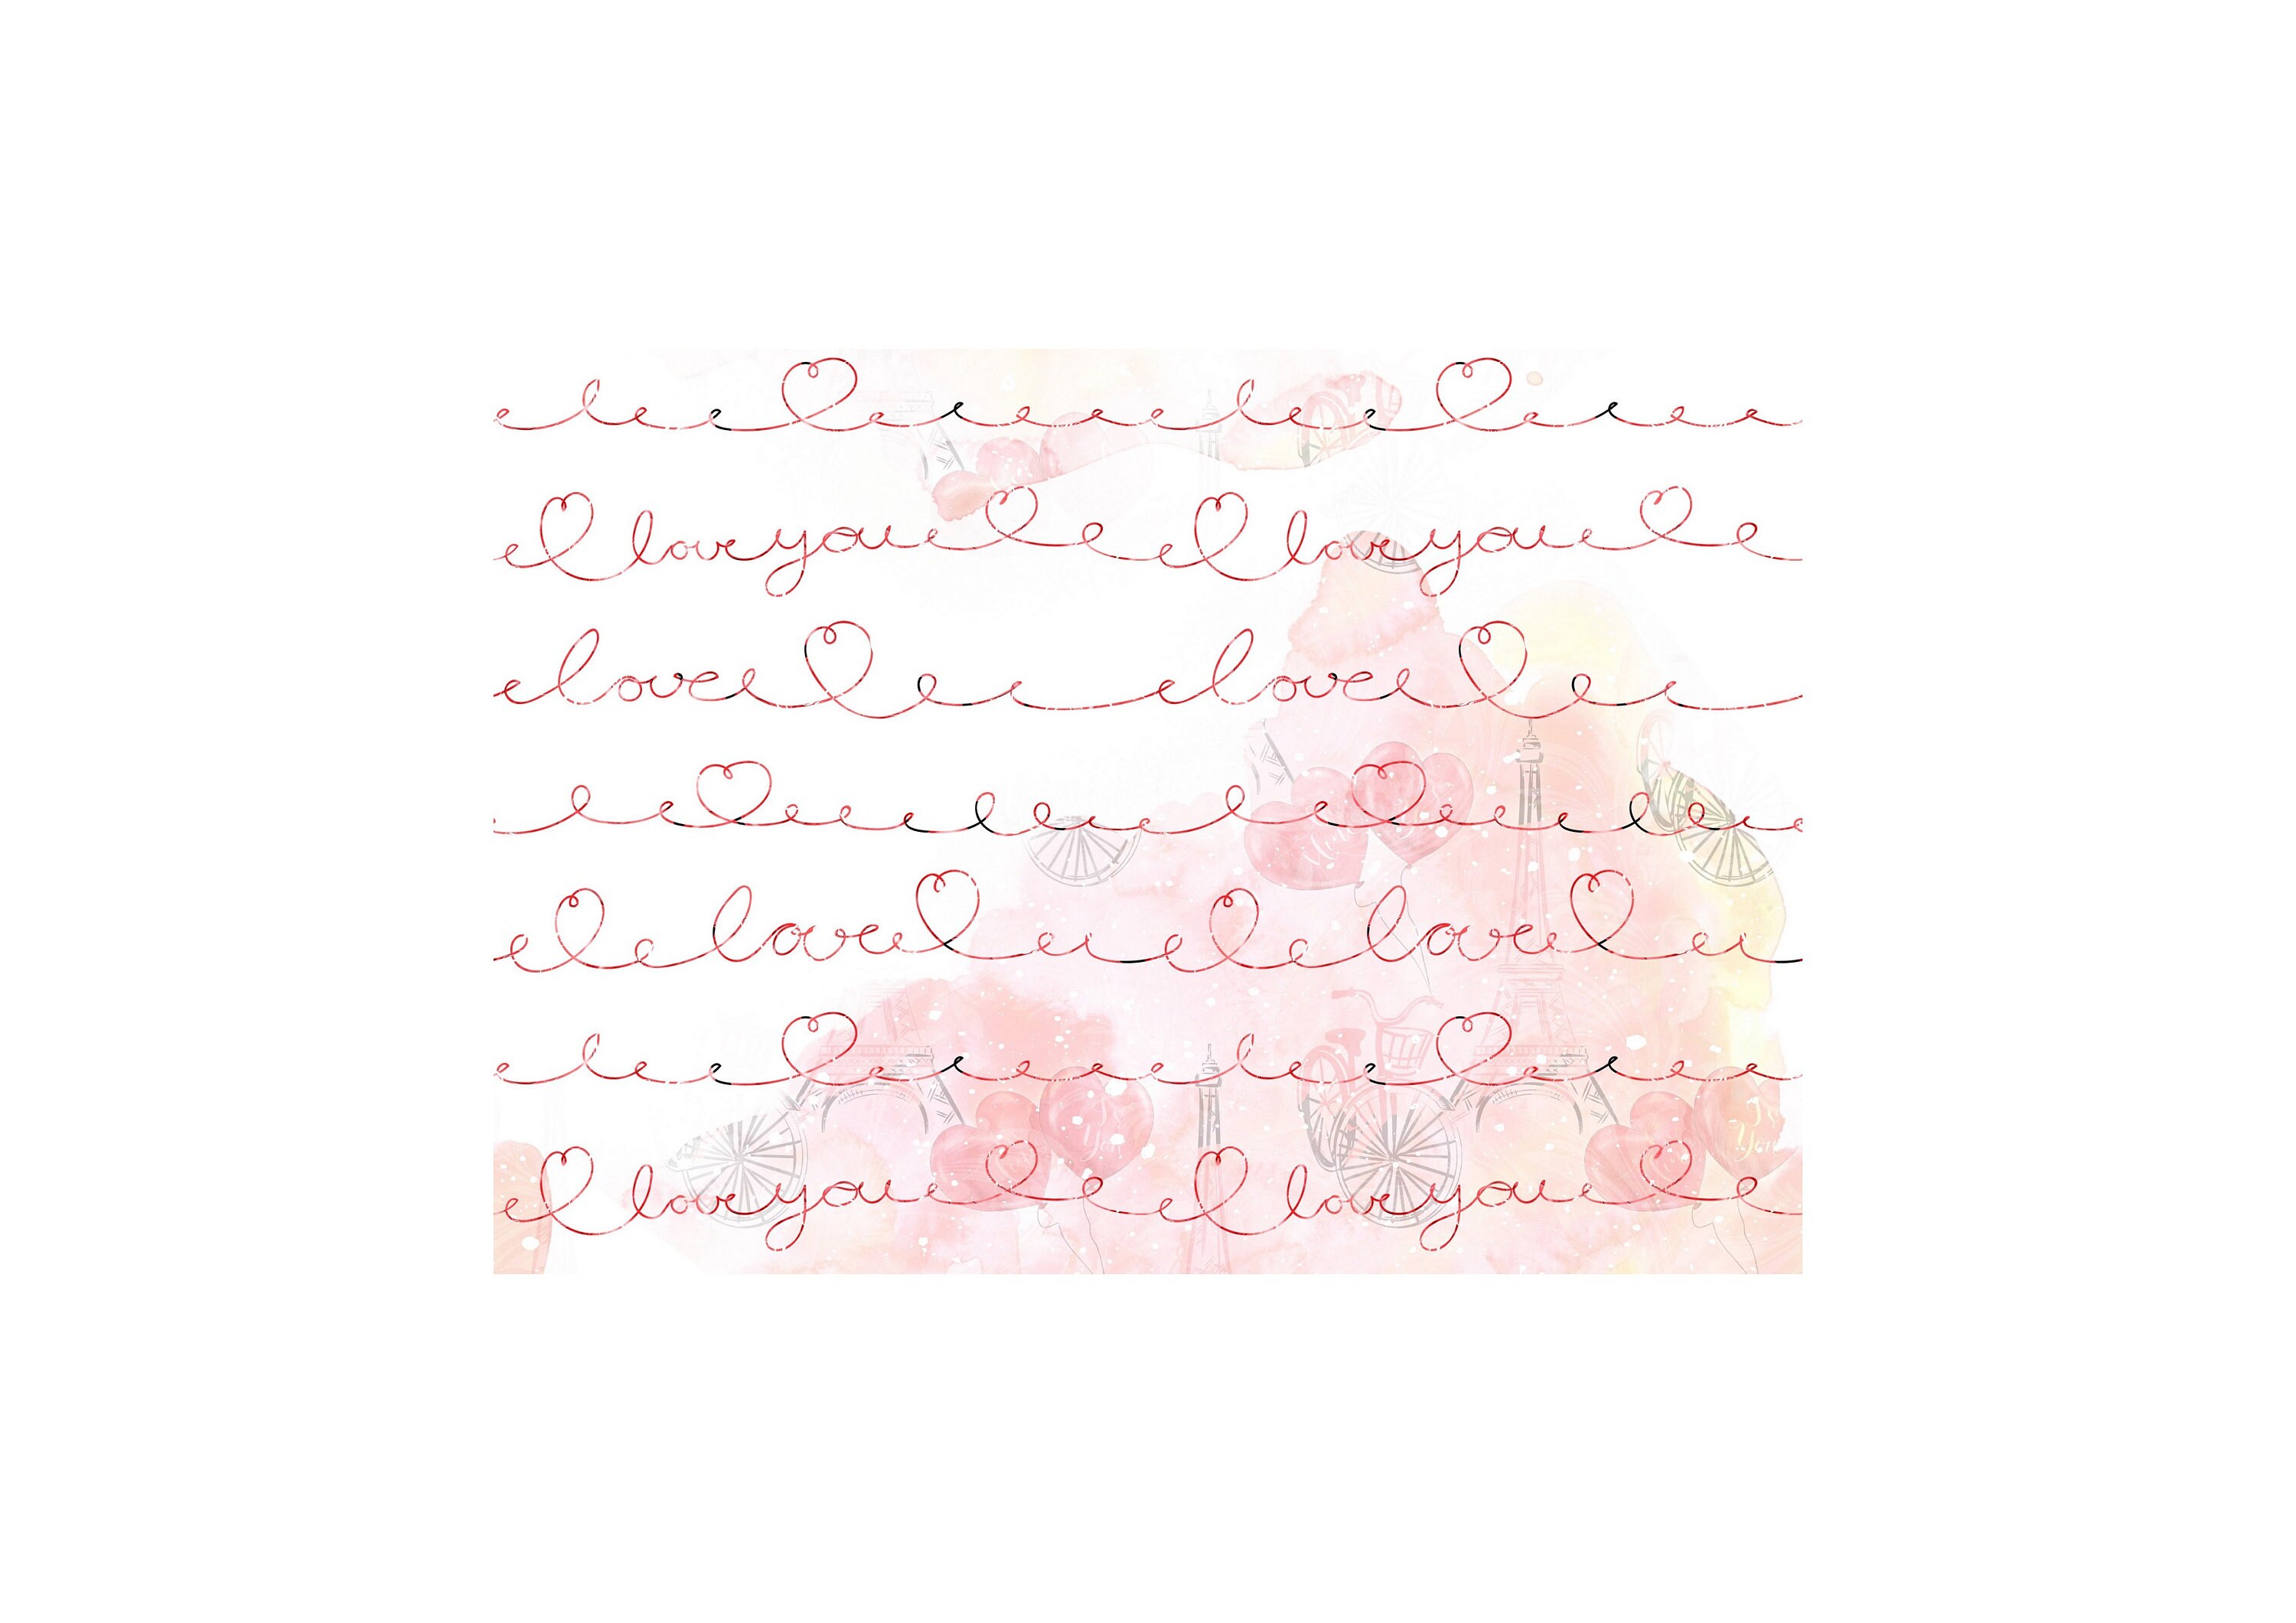 love you love you
love love
love love
love you love you